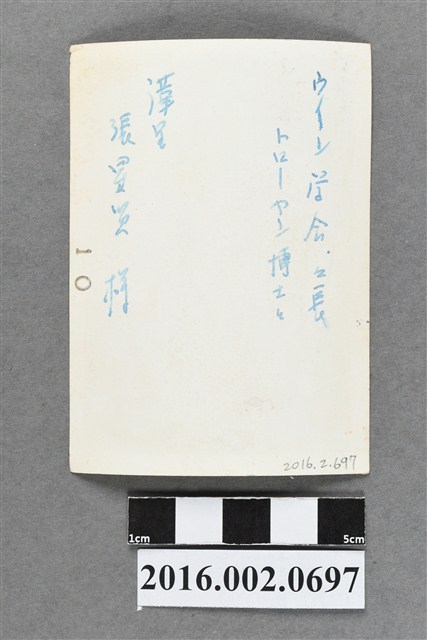 ウイン学会・会長
トローヤン博士と
謹呈
張星賢 様
10
2016.2.697
1cm
5cm
2016.002.0697